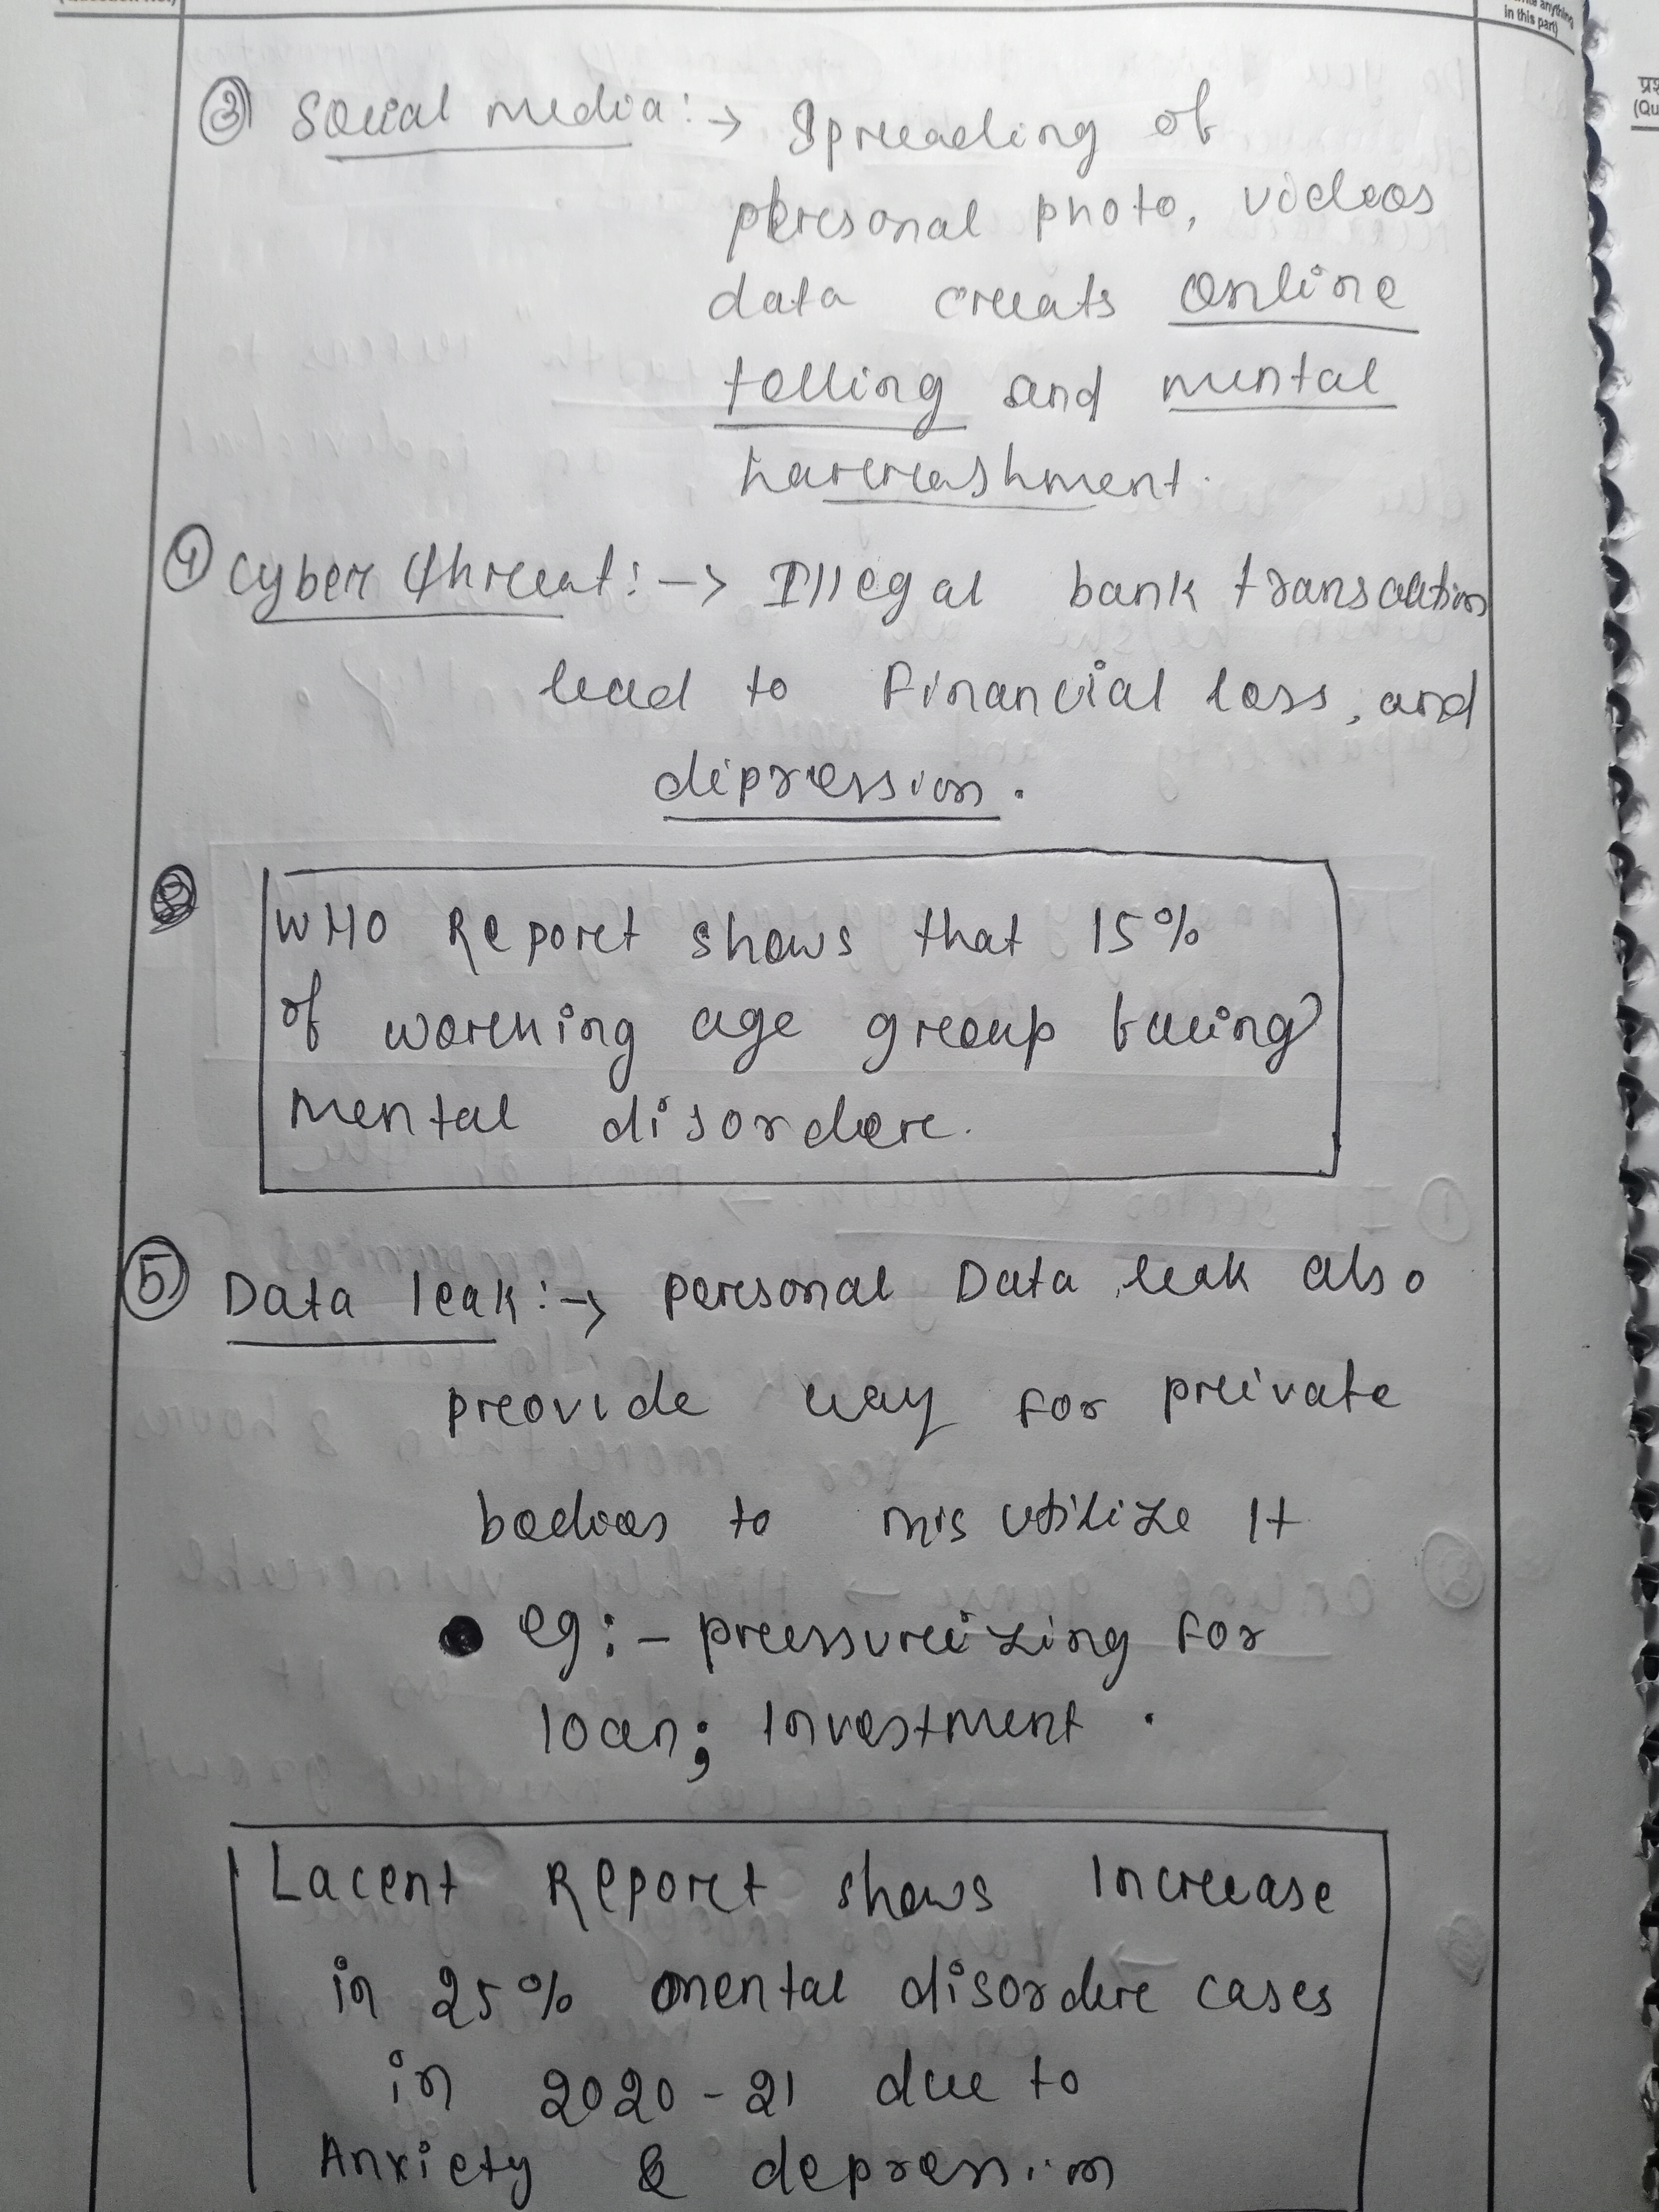 in this part)
③ Social media:→ Spreading of
personal photo, videos
data creats online
tolling and mental
harrashment.
④ Cyber threat:→ Illegal bank transaction
lead to Financial loss, and
dipression.
WHO Report shows that 15%
of working age group facing
mental disorder.
⑤ Data leak:→ personal Data leak also
provide way for private
bodies to mis utilize It
• eg:- pressurizing for
loan; Investment.
Lacent Report shows Increase
in 25% mental disorder cases
in 2020-21 due to
Anxiety & depression